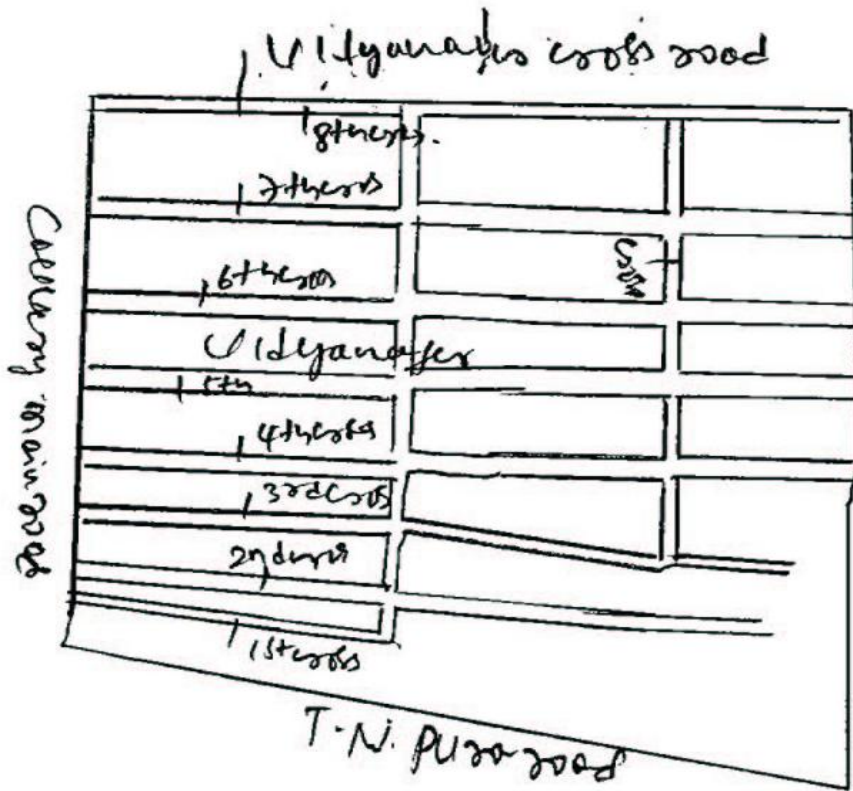 Vidyanagar cross road
8th cross.
7th cross
6th cross
cross
Vidyanagar
5th
4th cross
3rd cross
2nd cross
1st cross
T.N. Pura road
main road